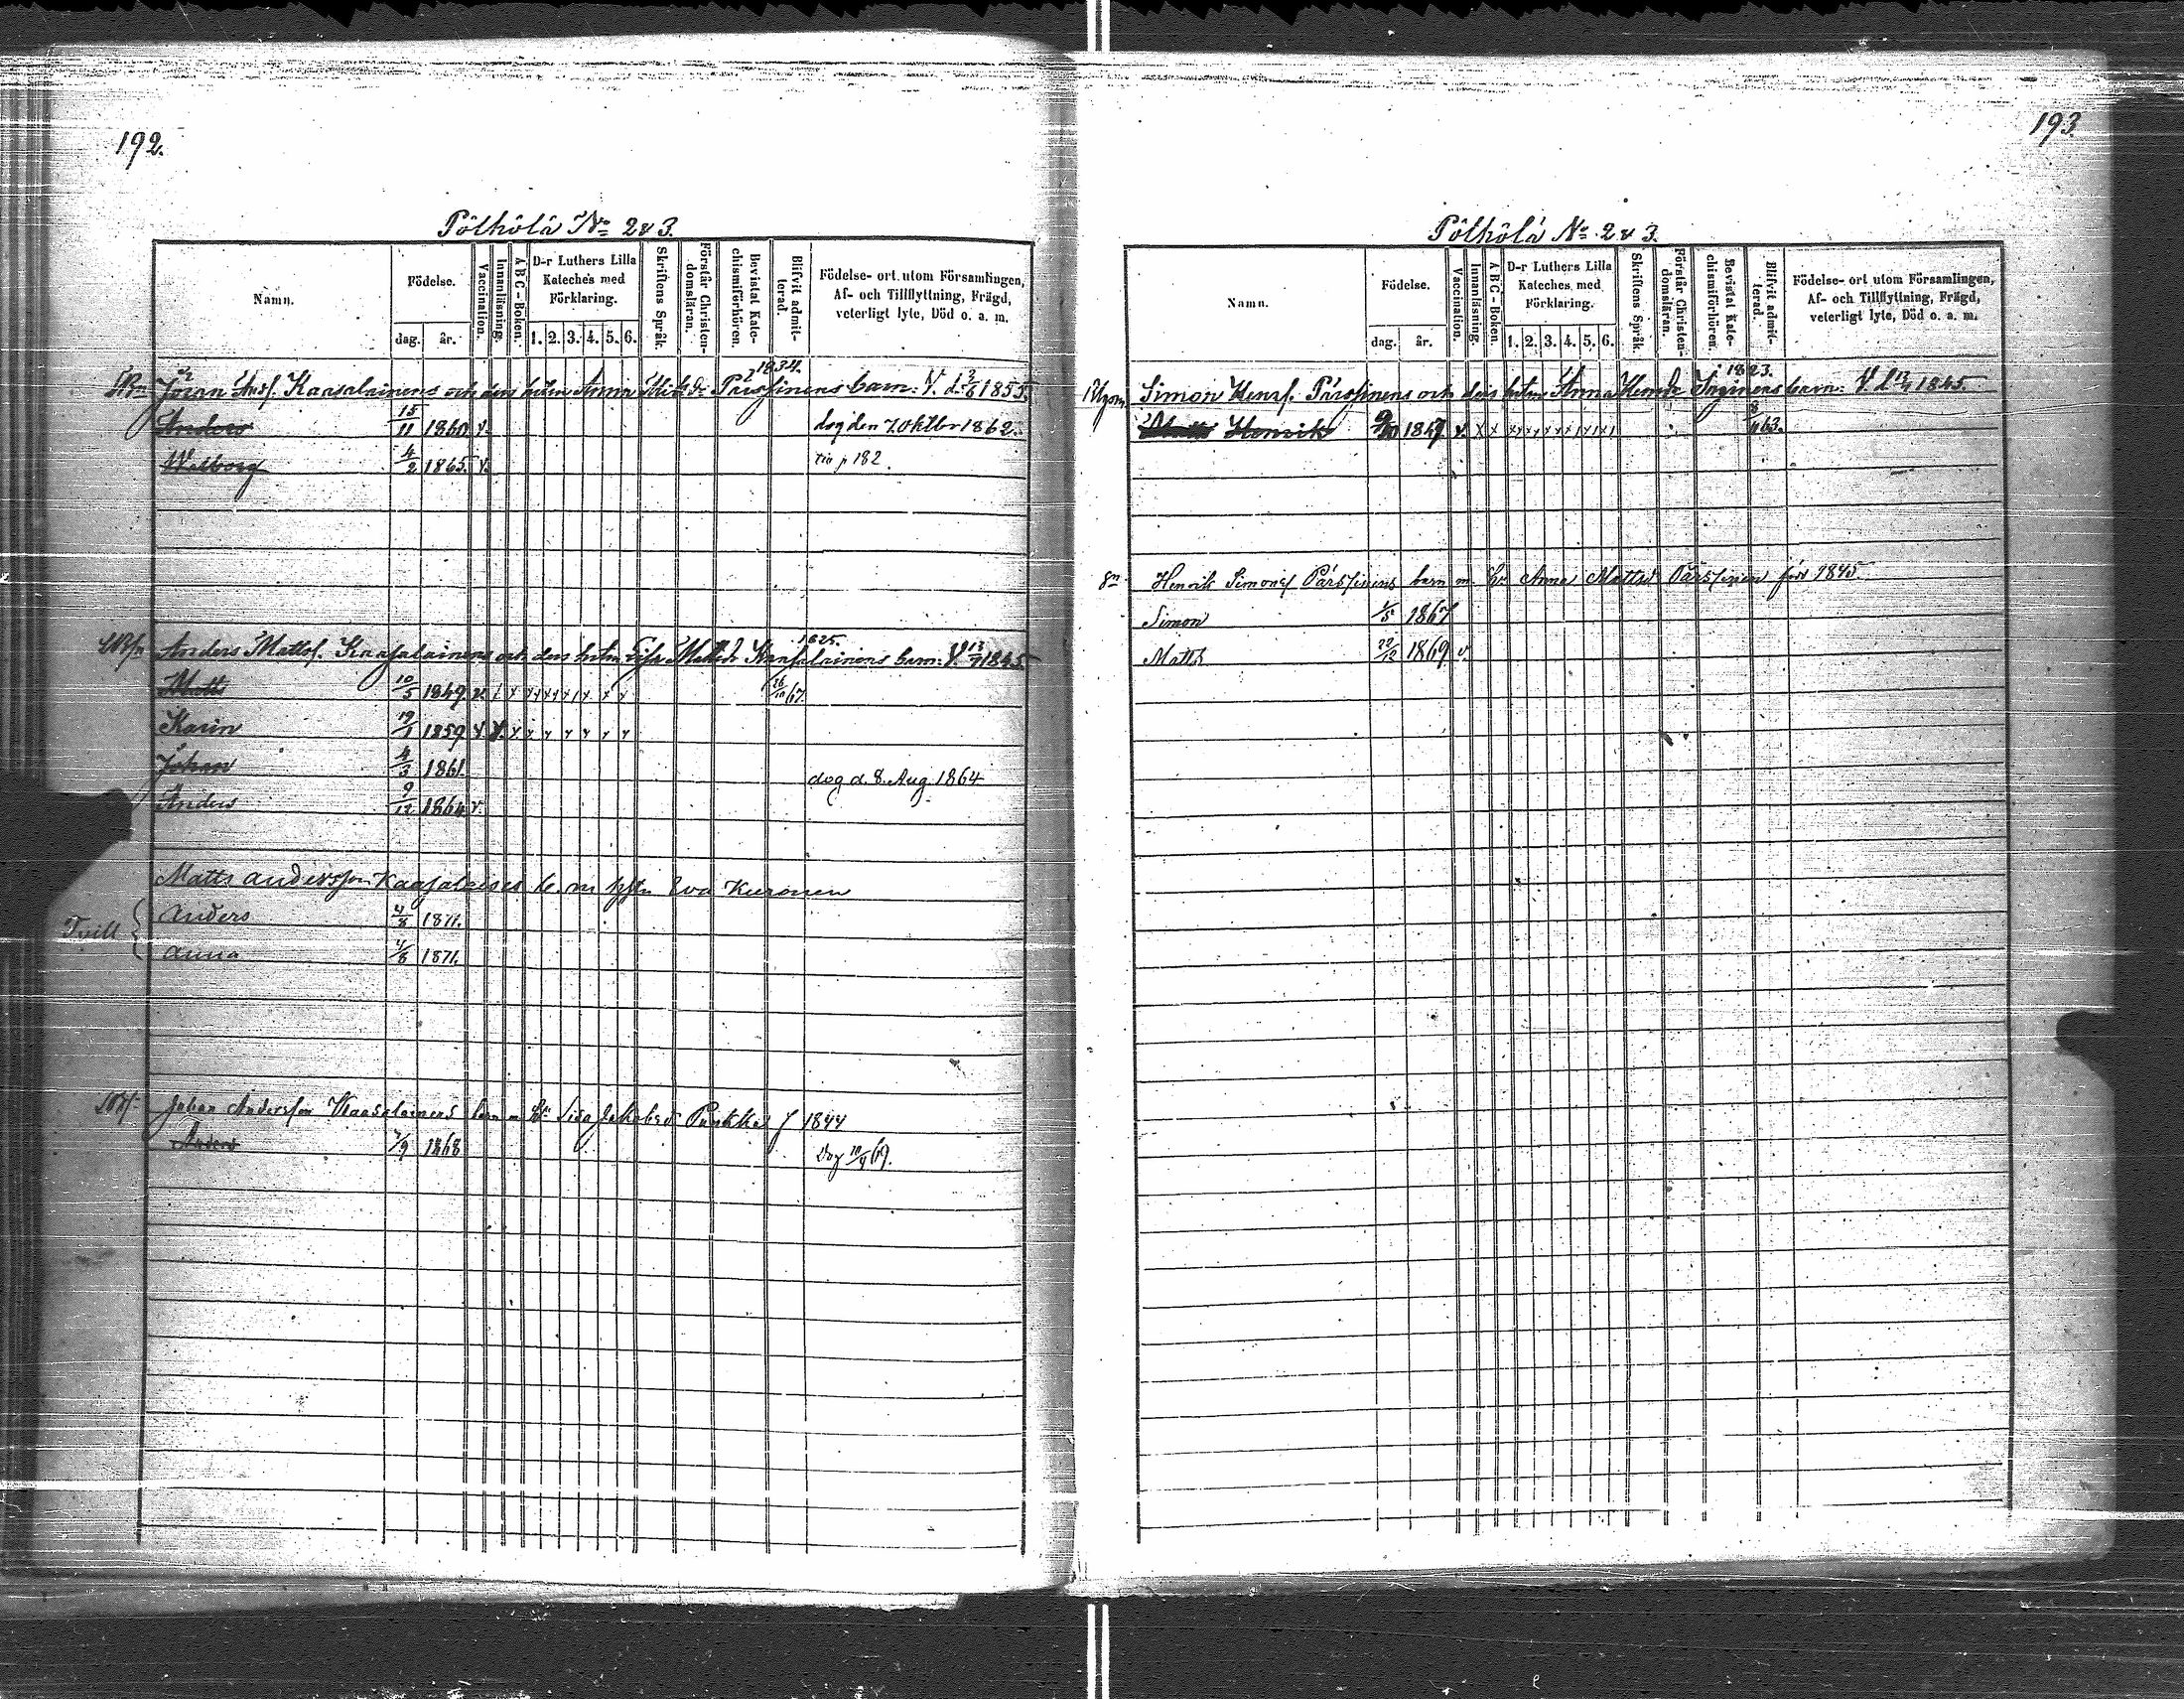 192.
Pölhölä No 2 & 3.
Namn.
Födelse.
dag.
år.
Vaccination.
Innanläsning.
A B C - Boken.
D-r Luthers Lilla
Kateches med
Förklaring.
1. 2. 3. 4. 5. 6.
Skriftens Språk.
Förstår Christen-
domsläran.
Bevistat Kate-
chismiförhören.
Blifvit admit-
terad.
Födelse- ort utom Församlingen,
Af- och Tillflyttning, Frägd,
veterligt lyte, Död o. a. m.
1834.
Kaasalainens och dess Anna Pärssinens barn: V. d. 1855.
Anders 15/11 1860. v. dog den 7. Oktbr 1862.
Walborg 4/2 1865. v. p 182
1825.
Anders Matts. Kaasalainens och dess Matsdr Kaasalainens barn: V. 1845
Matts 10/5 1849. v. x x x x x x x x 67.
Karin 19/1 1859 v x x x x x x x
Johan 4/3 1861. dog d. 8. Aug. 1864
Anders 9/12 1864 v.
Matts Andersson Kaasalaises Eva Kuronen
Tvill
Anders 4/8 1871.
Anna 4/8 1871.
Johan Andersson Kaasalainens barn m Lisa Jakobsd Punkka f 1844
Anders /9 1868 Dog 69.
193
Pölhölä No 2 & 3.
Namn.
Födelse.
dag.
år.
Vaccination.
Innanläsning.
A B C - Boken.
D-r Luthers Lilla
Kateches med
Förklaring.
1. 2. 3. 4. 5. 6.
Skriftens Språk.
Förstår Christen-
domsläran.
Bevistat Kate-
chismiförhören.
Blifvit admit-
terad.
Födelse- ort utom Församlingen,
Af- och Tillflyttning, Frägd,
veterligt lyte, Död o. a. m.
1823.
Simon Henrs. Pärssinens och dess Anna Henrsdr barn: V. 1845.
Henrik 1847. v. x x x x x x x x 63.
Henrik Simons Pärssinens barn m. Anna Mattsd Pärssinen född 1845
Simon 1/5 1867
Matts 22/12 1869 v.